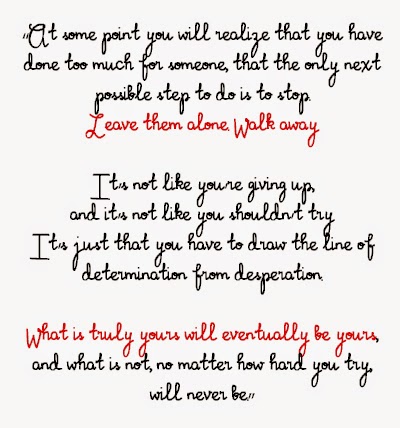 „At some point you will realize that you have
done too much for someone, that the only next
possible step to do is to stop.
Leave them alone. Walk away
It's not like you're giving up,
and it's not like you shouldn't try
It's just that you have to draw the line of
determination from desperation.
What is truly yours will eventually be yours,
and what is not, no matter how hard you try,
will never be.”